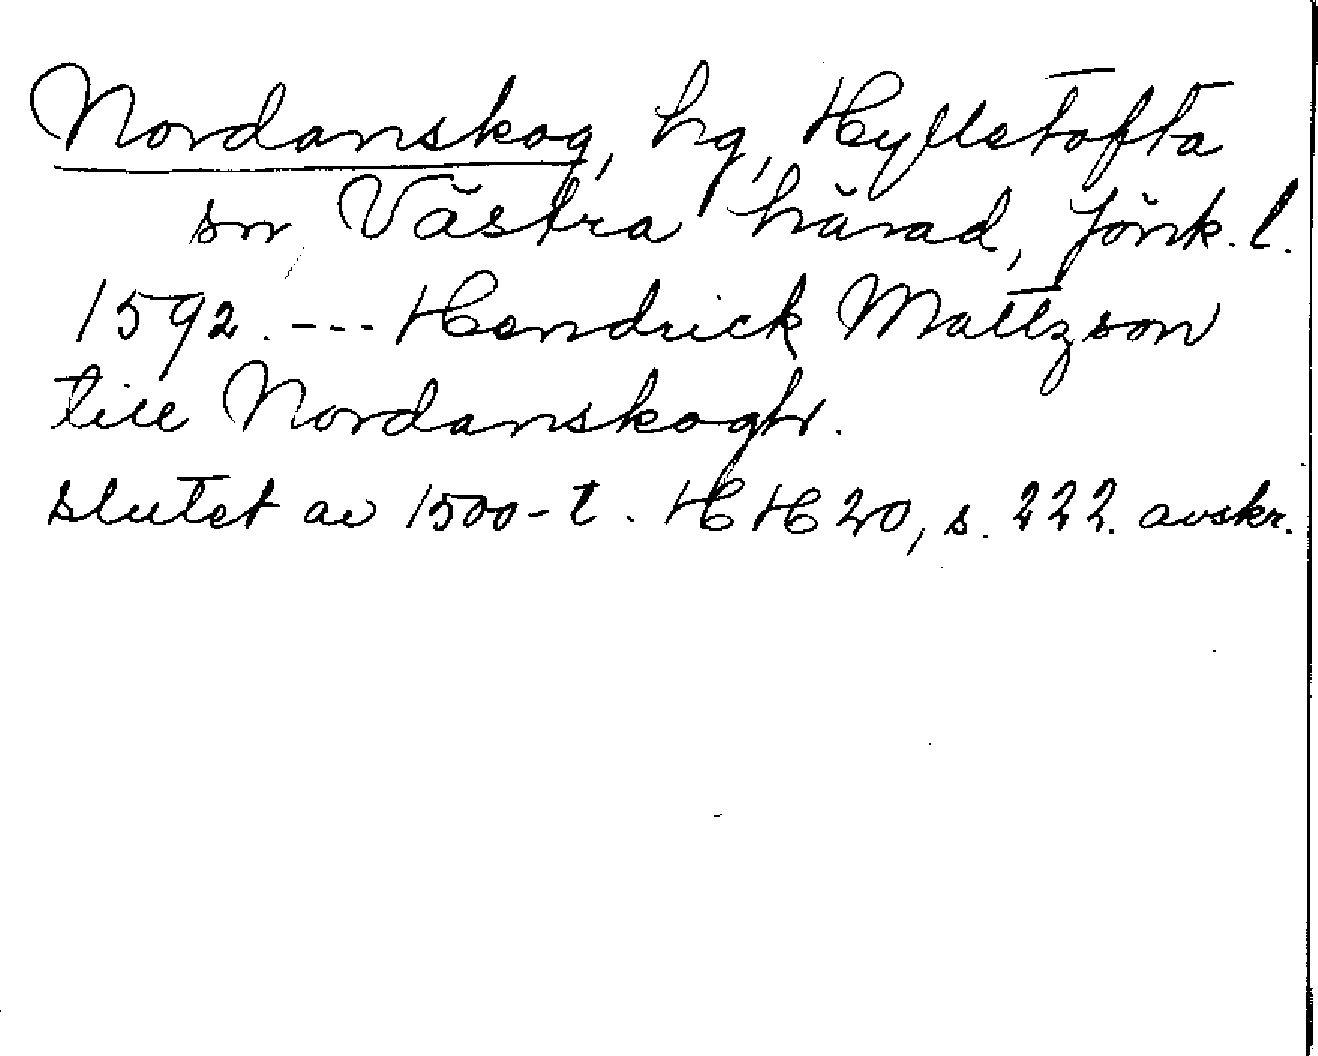 Nordanskog, hg, Hylletofta
sn, Västra härad, Jönk. l.
1592. --- Hendrick Mattzson
till Nordanskoghr.
slutet av 1500-t. HH 20, s. 222. avskr.